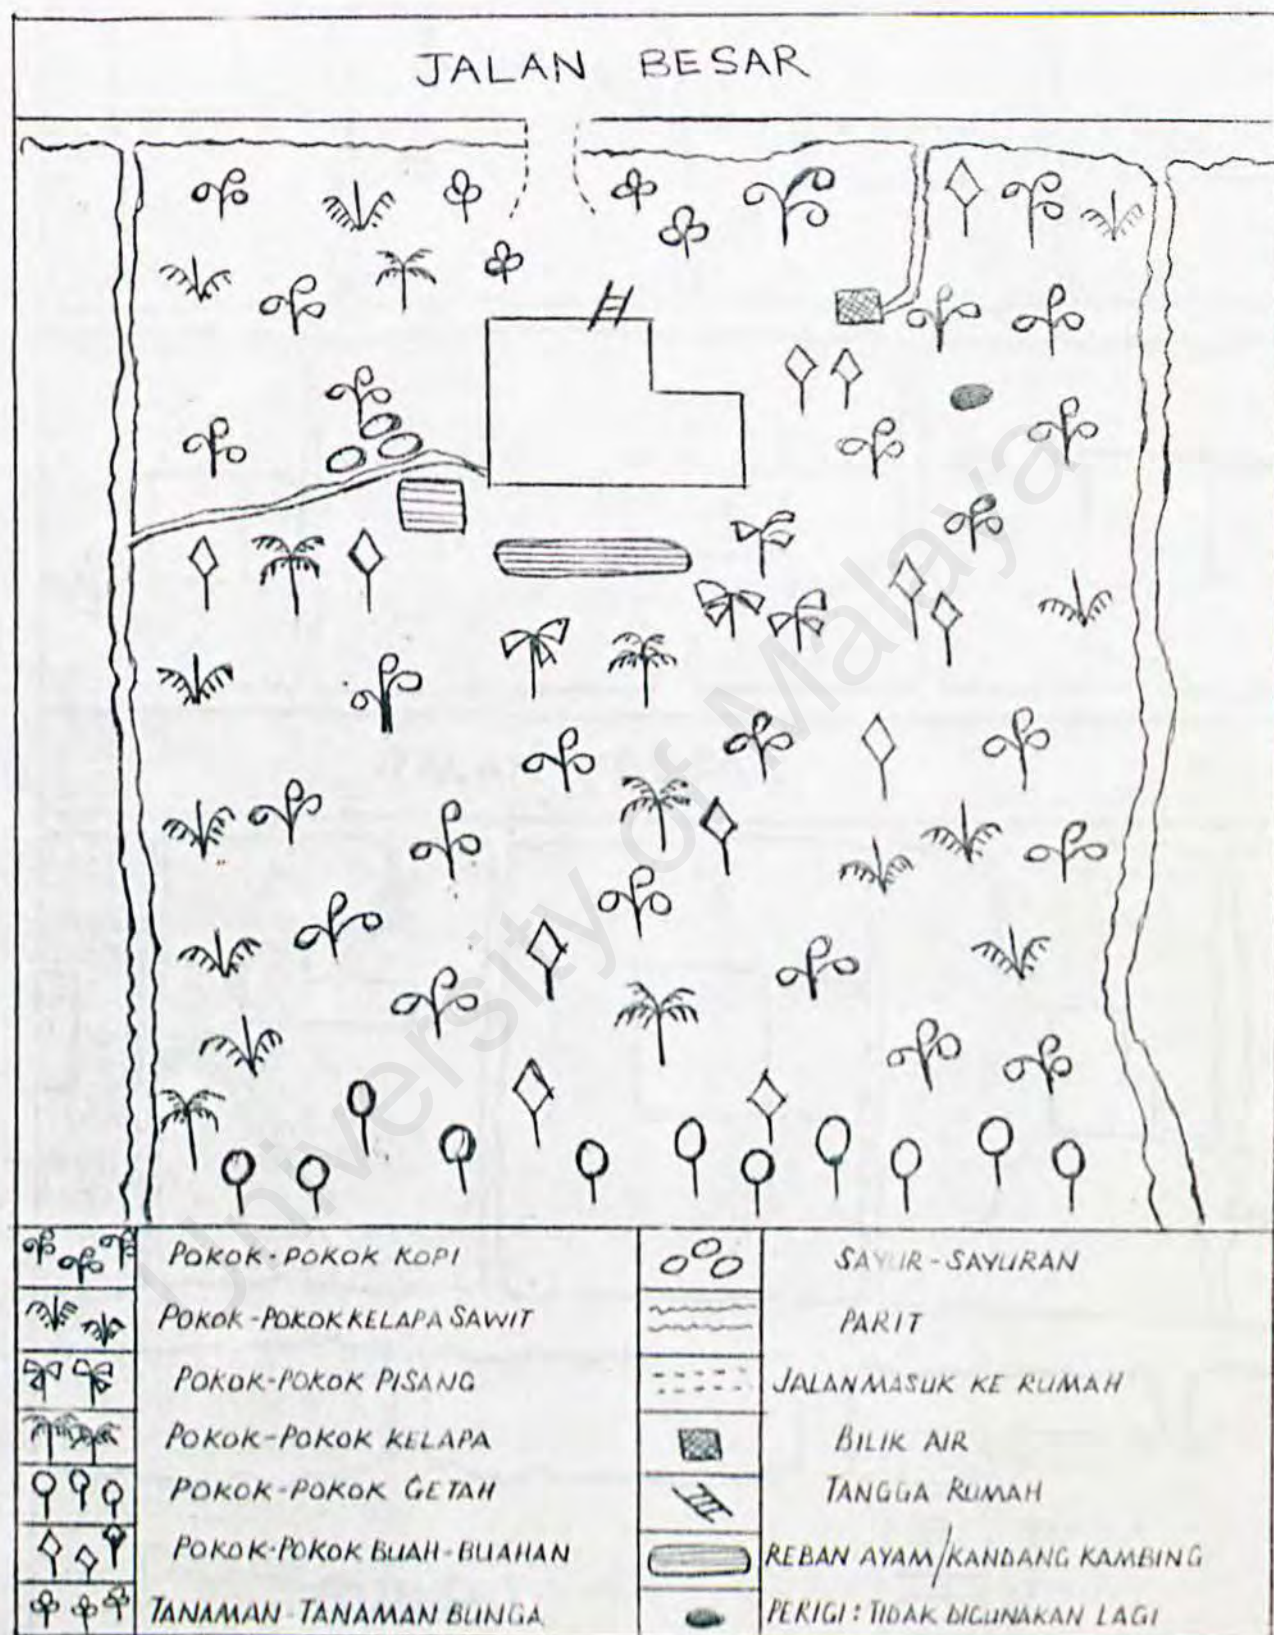 JALAN BESAR
University of Malaya
POKOK-POKOK KOPI
POKOK-POKOK KELAPA SAWIT
POKOK-POKOK PISANG
POKOK-POKOK KELAPA
POKOK-POKOK GETAH
POKOK-POKOK BUAH-BUAHAN
TANAMAN-TANAMAN BUNGA
SAYUR-SAYURAN
PARIT
JALAN MASUK KE RUMAH
BILIK AIR
TANGGA RUMAH
REBAN AYAM/KANDANG KAMBING
PERIGI: TIDAK DIGUNAKAN LAGI